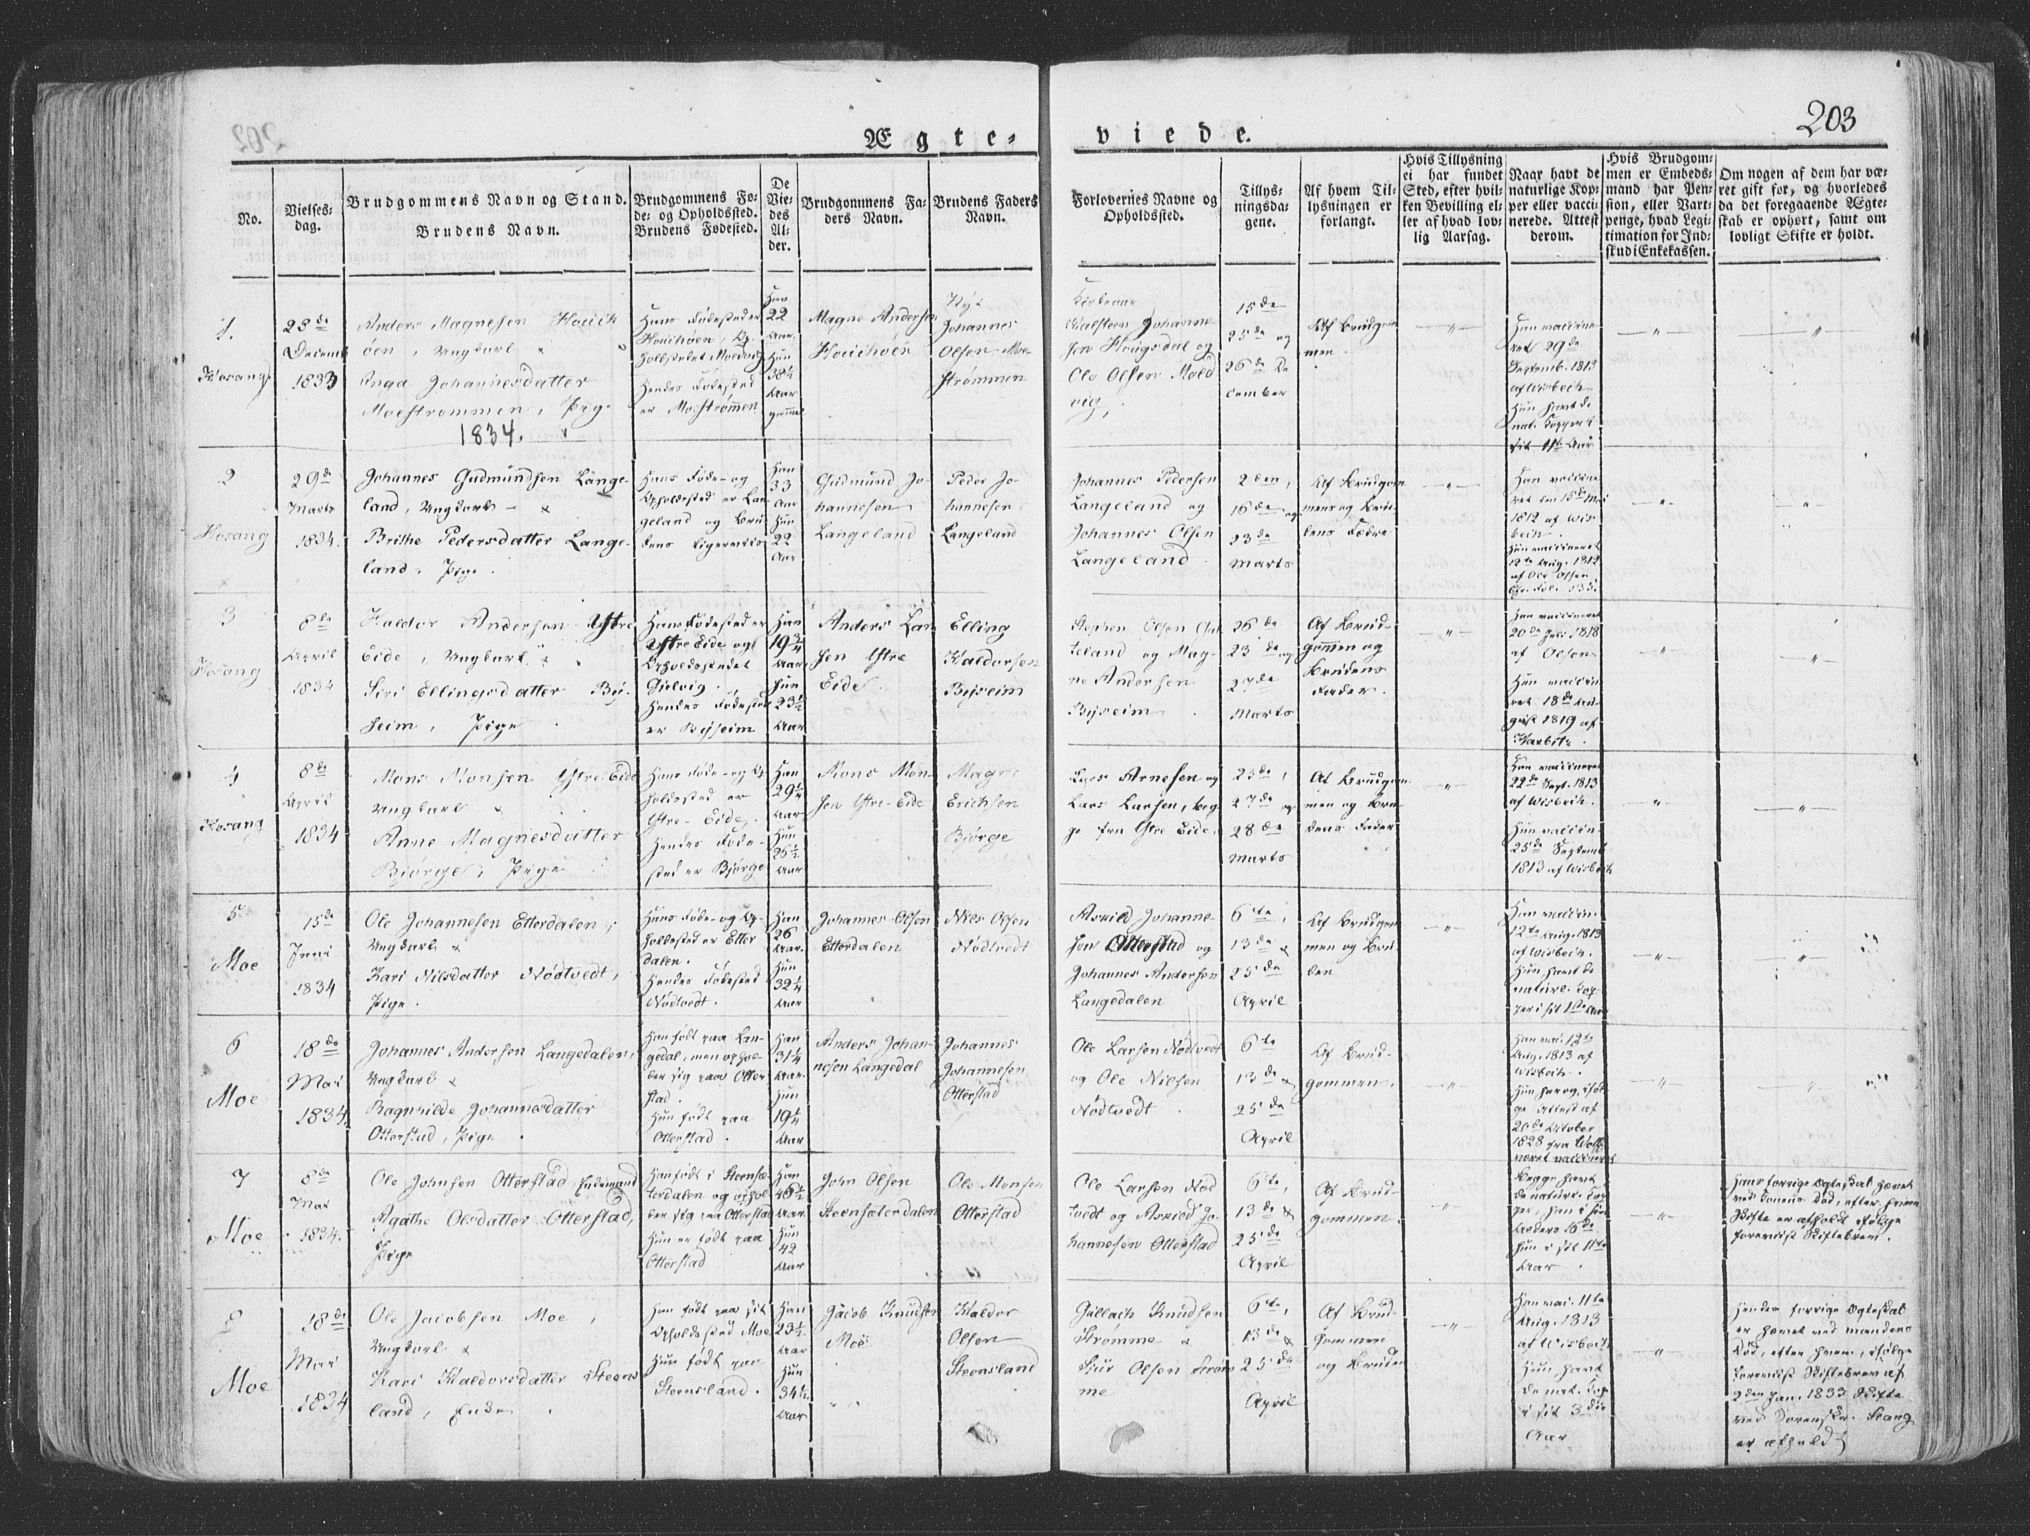 203
Ægte-
viede.
No.
Vielses-
dag.
Brudgommens Navn og Stand.
Brudens Navn.
Brudgommens Fø-
de- og Opholdssted.
Brudens Fødested.
De
Vie-
des
Al-
der.
Brudgommens Fa-
ders Navn.
Brudens Faders
Navn.
Forlovernes Navne og
Opholdssted.
Tillys-
ningsda-
gene.
Af hvem Til-
lysningen er
forlangt.
Hvis Tillysning
ei har fundet
Sted, efter hvil-
ken Bevilling el-
ler af hvad lov-
lig Aarsag.
Naar havt de
naturlige Kop-
per eller vacci-
nerede. Attest
derom.
Hvis Brudgom-
men er Embeds-
mand har Pen-
sion, eller Vart-
penge, hvad Legi-
timation for Ind-
skud i Enkekassen.
Om nogen af dem har væ-
ret gift før, og hvorledes
da det foregaaende Ægte-
skab er ophørt, samt om
lovligt Skifte er holdt.
1.
Hosang
23de
Decemb
1833
Anders Magnesen
øen, Ungkarl
Inga Johannesdatter
Moestrømmen, Pige
Hans Fødested er
Opholdsstedet Moldvig
Hendes Fødested
er Moestrømmen
Han
22
Aar
Hun
38½
Aar
gammel
Magne Andersen
Johannes
Olsen Moe-
strømmen
Johanne-
sen Hougsdal og
Ole Olsen Mold
vig,
15de
25de og
26de De
cember
Af Brudgom
men.
Han vaccine-
ret 29de
Septemb. 1813
af Wisbech
Hun havt de
nat. Kopper i
sit 11te Aar
1834.
2
Hosang
29de
Marts
1834.
Johannes Gudmundsen Lange-
land, Ungkarl
Brithe Pedersdatter Lange-
land. Pige.
Hans Føde- og
Opholdssted er Lan-
geland og Bru-
dens ligeveiis
Han
33
Aar
Hun
22
Aar
Gudmund Jo-
hannesen
Langeland
Peder Jo-
hannesen
Langeland
Johannes Pedersen
Langeland og
Johannes Olsen
Langeland.
2den,
16de og
23de
Marts
Af Brudgom
men og Bru-
dens Fædre
Han vaccine-
ret den 16de Mai
1812 af Wis
bech.
Hun vaccineret
12te Aug. 1812
af Ole Olsen
3
Hosang
8de
April
1834
Haldor Andersen Ystre
Eide, Ungkarl
Siri Ellingsdatter By-
seim, Pige.
Hans Fødested er
Ystre Eide og
Opholdsstedet
Hendes Fødested
er Byseim
Han
19¾
Aar
Hun
23½
Aar
Anders Lar
sen Ystre
Eide.
Elling
Haldorsen
Byseim
Stephen Olsen
land og Mag-
ne Andersen
Byseim
23de og
27de
Marts
Af Brud-
gommen og
Brudens
Fader.
Han vaccineret
20de Juli 1818
af Olsen
Hun vaccine-
ret 18de Au-
gust 1819 af
4
Hosang
8de
April
1834
Mons Monsen Ystre Eide
Ungkarl
Anne Magnesdatter
Bjørge, Pige
Hans Føde- og Op
holdssted er
Ystre-Eide,
Hendes Føde-
sted er Bjørge
Han
29¼
Aar
Hun
25½
Aar
Mons Mon-
sen Ystre-Eide
Magne
Erichsen
Bjørge
Lars Arnesen og
Lars Larsen, beg-
ge fra Ystre Eide,
23de,
27de og
28de
Marts
Af Brudgom
men og Bru-
dens Fader
Han vaccineret
22de Sept. 1813
af Wisbech.
Hun vaccin-
25de Septemb
1813 af Wisbech
5
Moe
15de
Juni
1834
Ole Johannesen Etterdalen,
Ungkarl
Kari Nilsdatter Nødtvedt,
Pige.
Hans Føde- og Op-
holdssted er Etter
dalen.
Hendes Fødested
Nødtvedt.
Han
26
Aar.
Hun
32¼
Aar
Johannes Olsen
Etterdalen
Niels Olsen
Nødtvedt
Askild Johanne-
sen Otterstad og
Johannes Andersen
Langedalen
6te,
13de &
25de
April
Af Brudgom
men og Bru-
den
Han vaccin-
12te Aug. 1813
af Wisbech.
Hun havt de
naturl. Kop
per i sit 1ste Aar
6
Moe
18de
Mai
1834.
Johannes Andersen Langedalen,
Ungkarl
Ragnhilde Johannesdatter
Otterstad, Pige.
Han født paa Lan-
gedal, men ophol-
der sig paa Otter
stad.
Hun født paa
Otterstad.
Han
31¼
Aar.
Hun
19¼
Aar
Anders Johan-
nesen Langedal
Johannes
Johannesen
Otterstad
Ole Larsen Nødtvedt
og Ole Nilsen
Nødtvedt.
6te
13de &
25de
April
Af Brud-
gommen.
Han vac. 12te
Aug. 1813 af
Wisbech.
Hun har og, iføl-
ge Attest af
20de October
1828 fra
været vaccineret
7
Moe
8de
Mai
1834.
Ole Johnsen Otterstad Enkemand
Agathe Olsdatter Otterstad,
Pige
Han født i Steensæ-
terdalen og ophol
der sig paa Otterstad
Hun er født paa
Otterstad
Han
46½
Aar
Hun
42
Aar
John Olsen
Steensæterdalen
Ole Monsen
Otterstad
Ole Larsen Nød
tvedt og Askild Jo-
hannesen Otterstad
6te,
13de &
25de
April
Af Brud-
gommen.
Begge havt
de naturl. Kop
per, han i sin
Alders 16de
Hun i sit 11te
Aar.
Hans forrige Ægteskab hævet
ved Konens Død, efter hvem
Skifte er afholdt ifølge
foreviist Skiftebrev.
8
Moe
18de
Mai
1834
Ole Jacobsen Moe,
Ungkarl
Kari Haldorsdatter Steens
land, Enke.
Han født paa sit
Opholdssted Moe
Hun født paa
Steensland.
Han
23½
Aar
Hun
34½
Aar
Jacob Knudsen
Moe
Haldor
Olsen
Steensland
Gullach Knudsen
Strømme &
Siur Olsen Strøm
me
6te,
13de &
25de
April
Af Brud-
gommen
og Bruden
Han vac. 11te
Aug. 1813
af Wisbech
Hun havt
de nat. Kop
i sit 3die
Aar
Hendes forrige Ægteskab
er hævet ved Mandens
Død, efter hvem, ifølge
foreviist Skiftebrev af
2den Jan. 1833 Skifte
ved Sorenskr. Krang
er afholdt